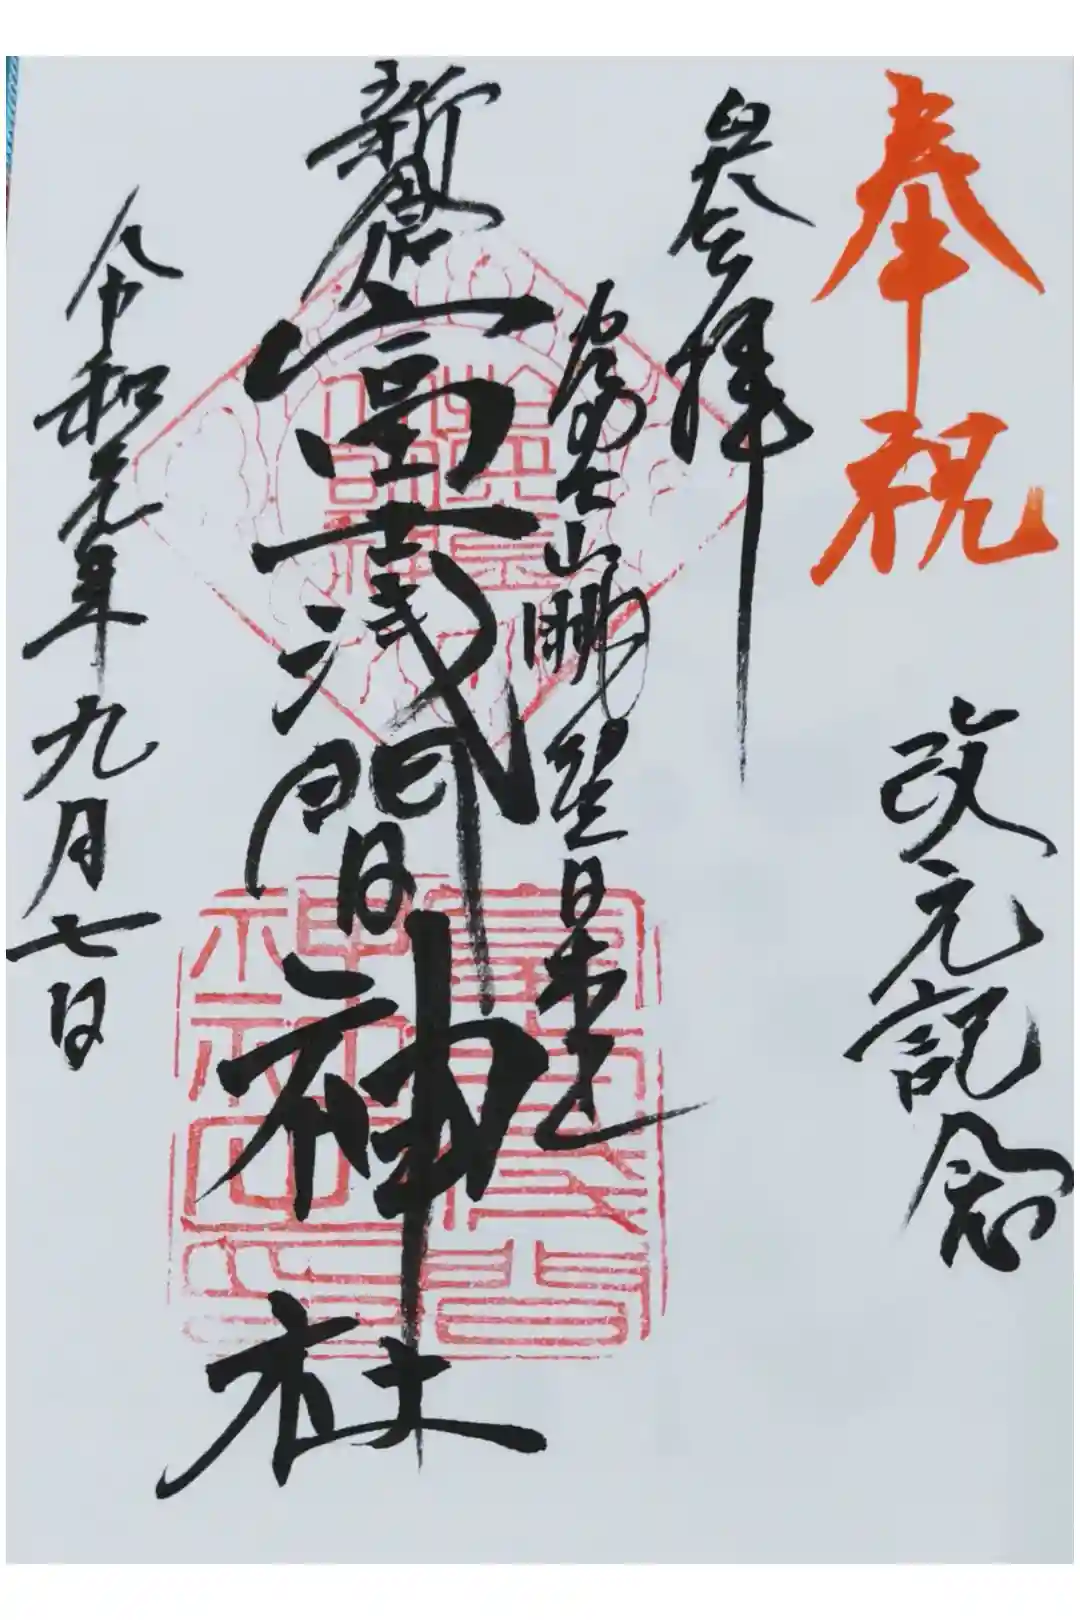 奉祝
改元記念
參拝
富士山眺望日本一
新倉富士浅間神社
令和元年九月七日